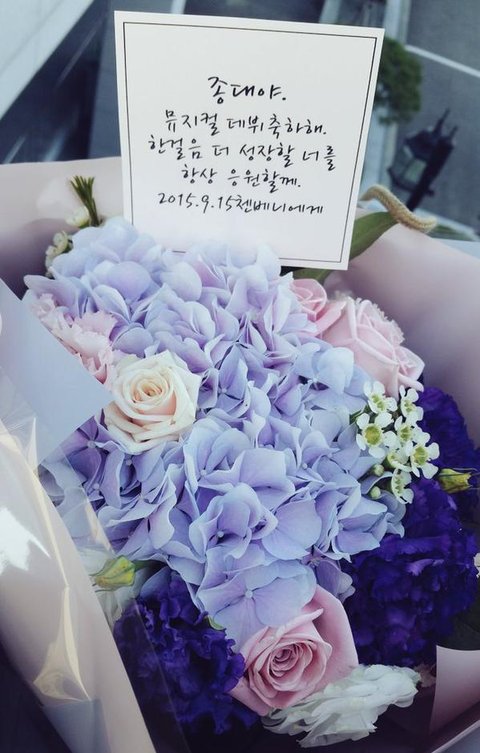 종대야.
뮤지컬 데뷔축하해.
한걸음 더 성장할 너를
항상 응원할께.
2015.9.15첸베니에게